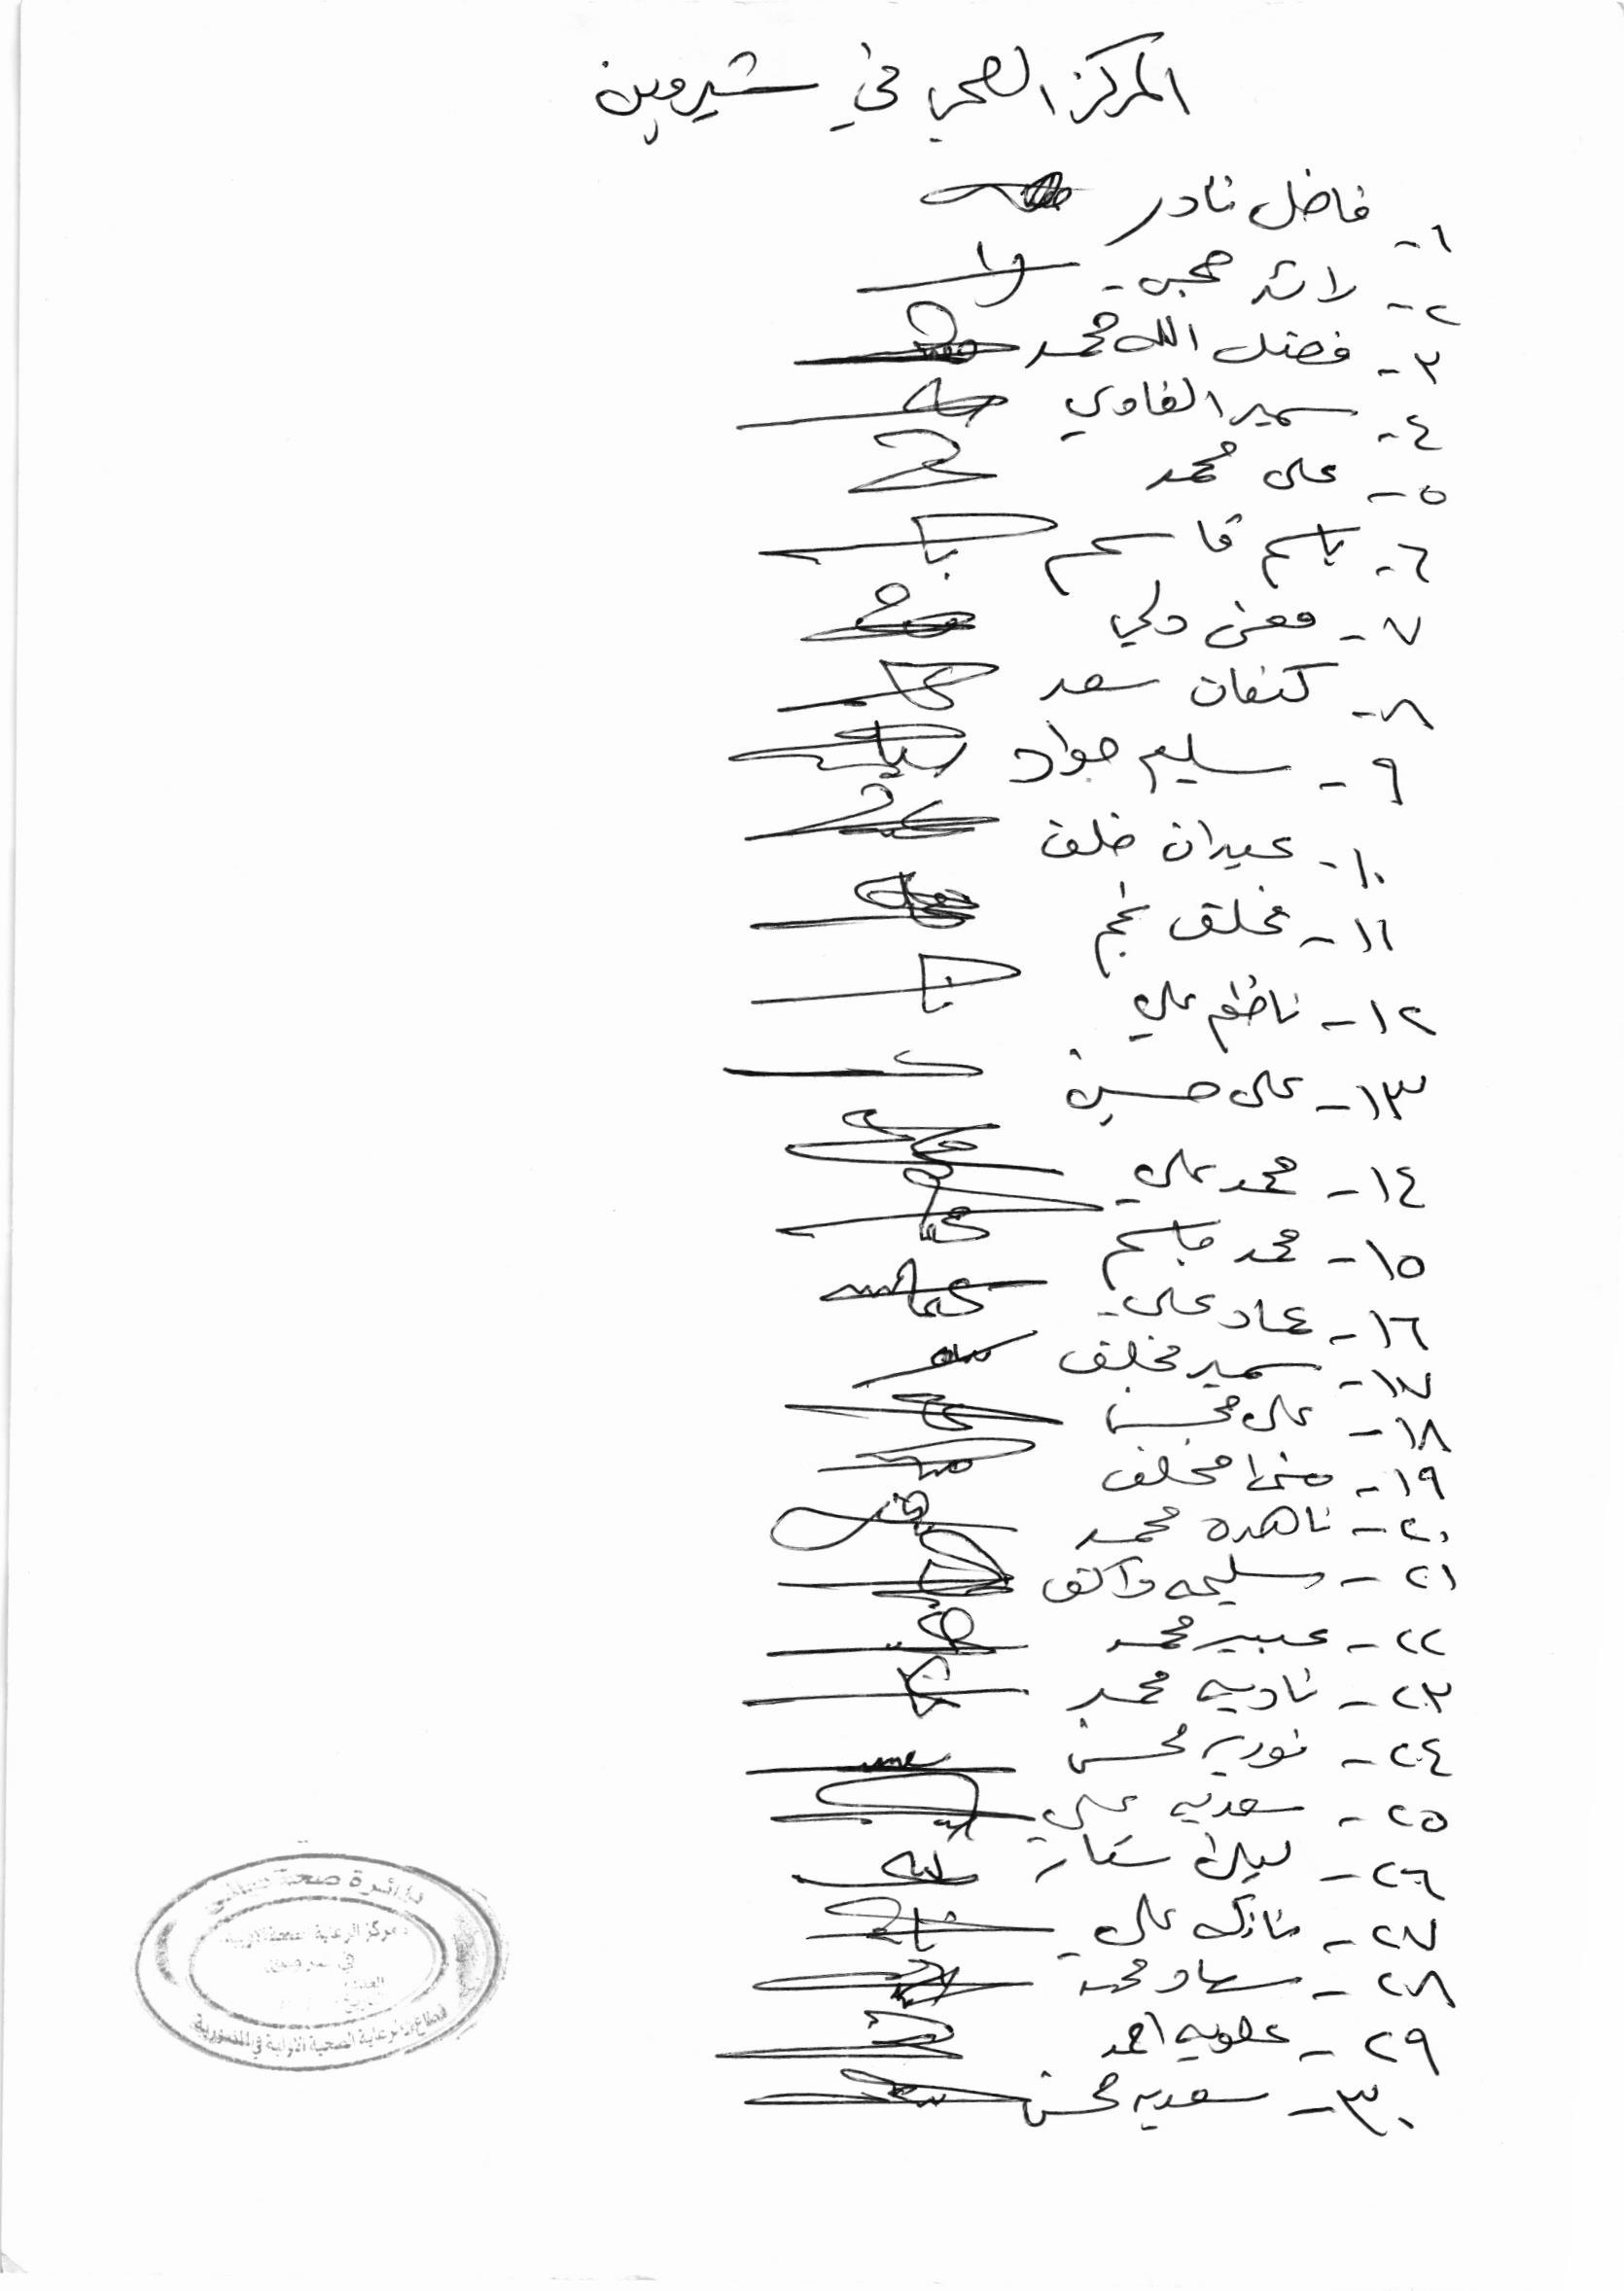 المركز الصحي في شيروين
١- فاضل نادر
٢- رائد حجي
٣- فضل الله محمد
٤- سمير الغاوي
٥- علي محمد
٦- باسم قاسم
٧- معن دلي
٨- كنعان سعد
٩- سليم جواد
١٠- عيدان خلف
١١- مخلف نجم
١٢- ناظم علي
١٣- علي حسين
١٤- محمد علي
١٥- محمد جاسم
١٦- عماد علي
١٧- سمير مخلف
١٨- علي محسن
١٩- مخلف
٢٠- ناهده محمد
٢١- سليمه
٢٢- عبير محمد
٢٣- ناديه محمد
٢٤- نوريه محسن
٢٥- سعديه علي
٢٦- ليلى ستار
٢٧- نازك علي
٢٨- سعاد محمد
٢٩- علويه احمد
٣٠- سعديه محسن
دائرة صحة
مركز الرعاية الصحية الاولية
في
العدد
قطاع الرعاية الصحية الاولية في المنصورية